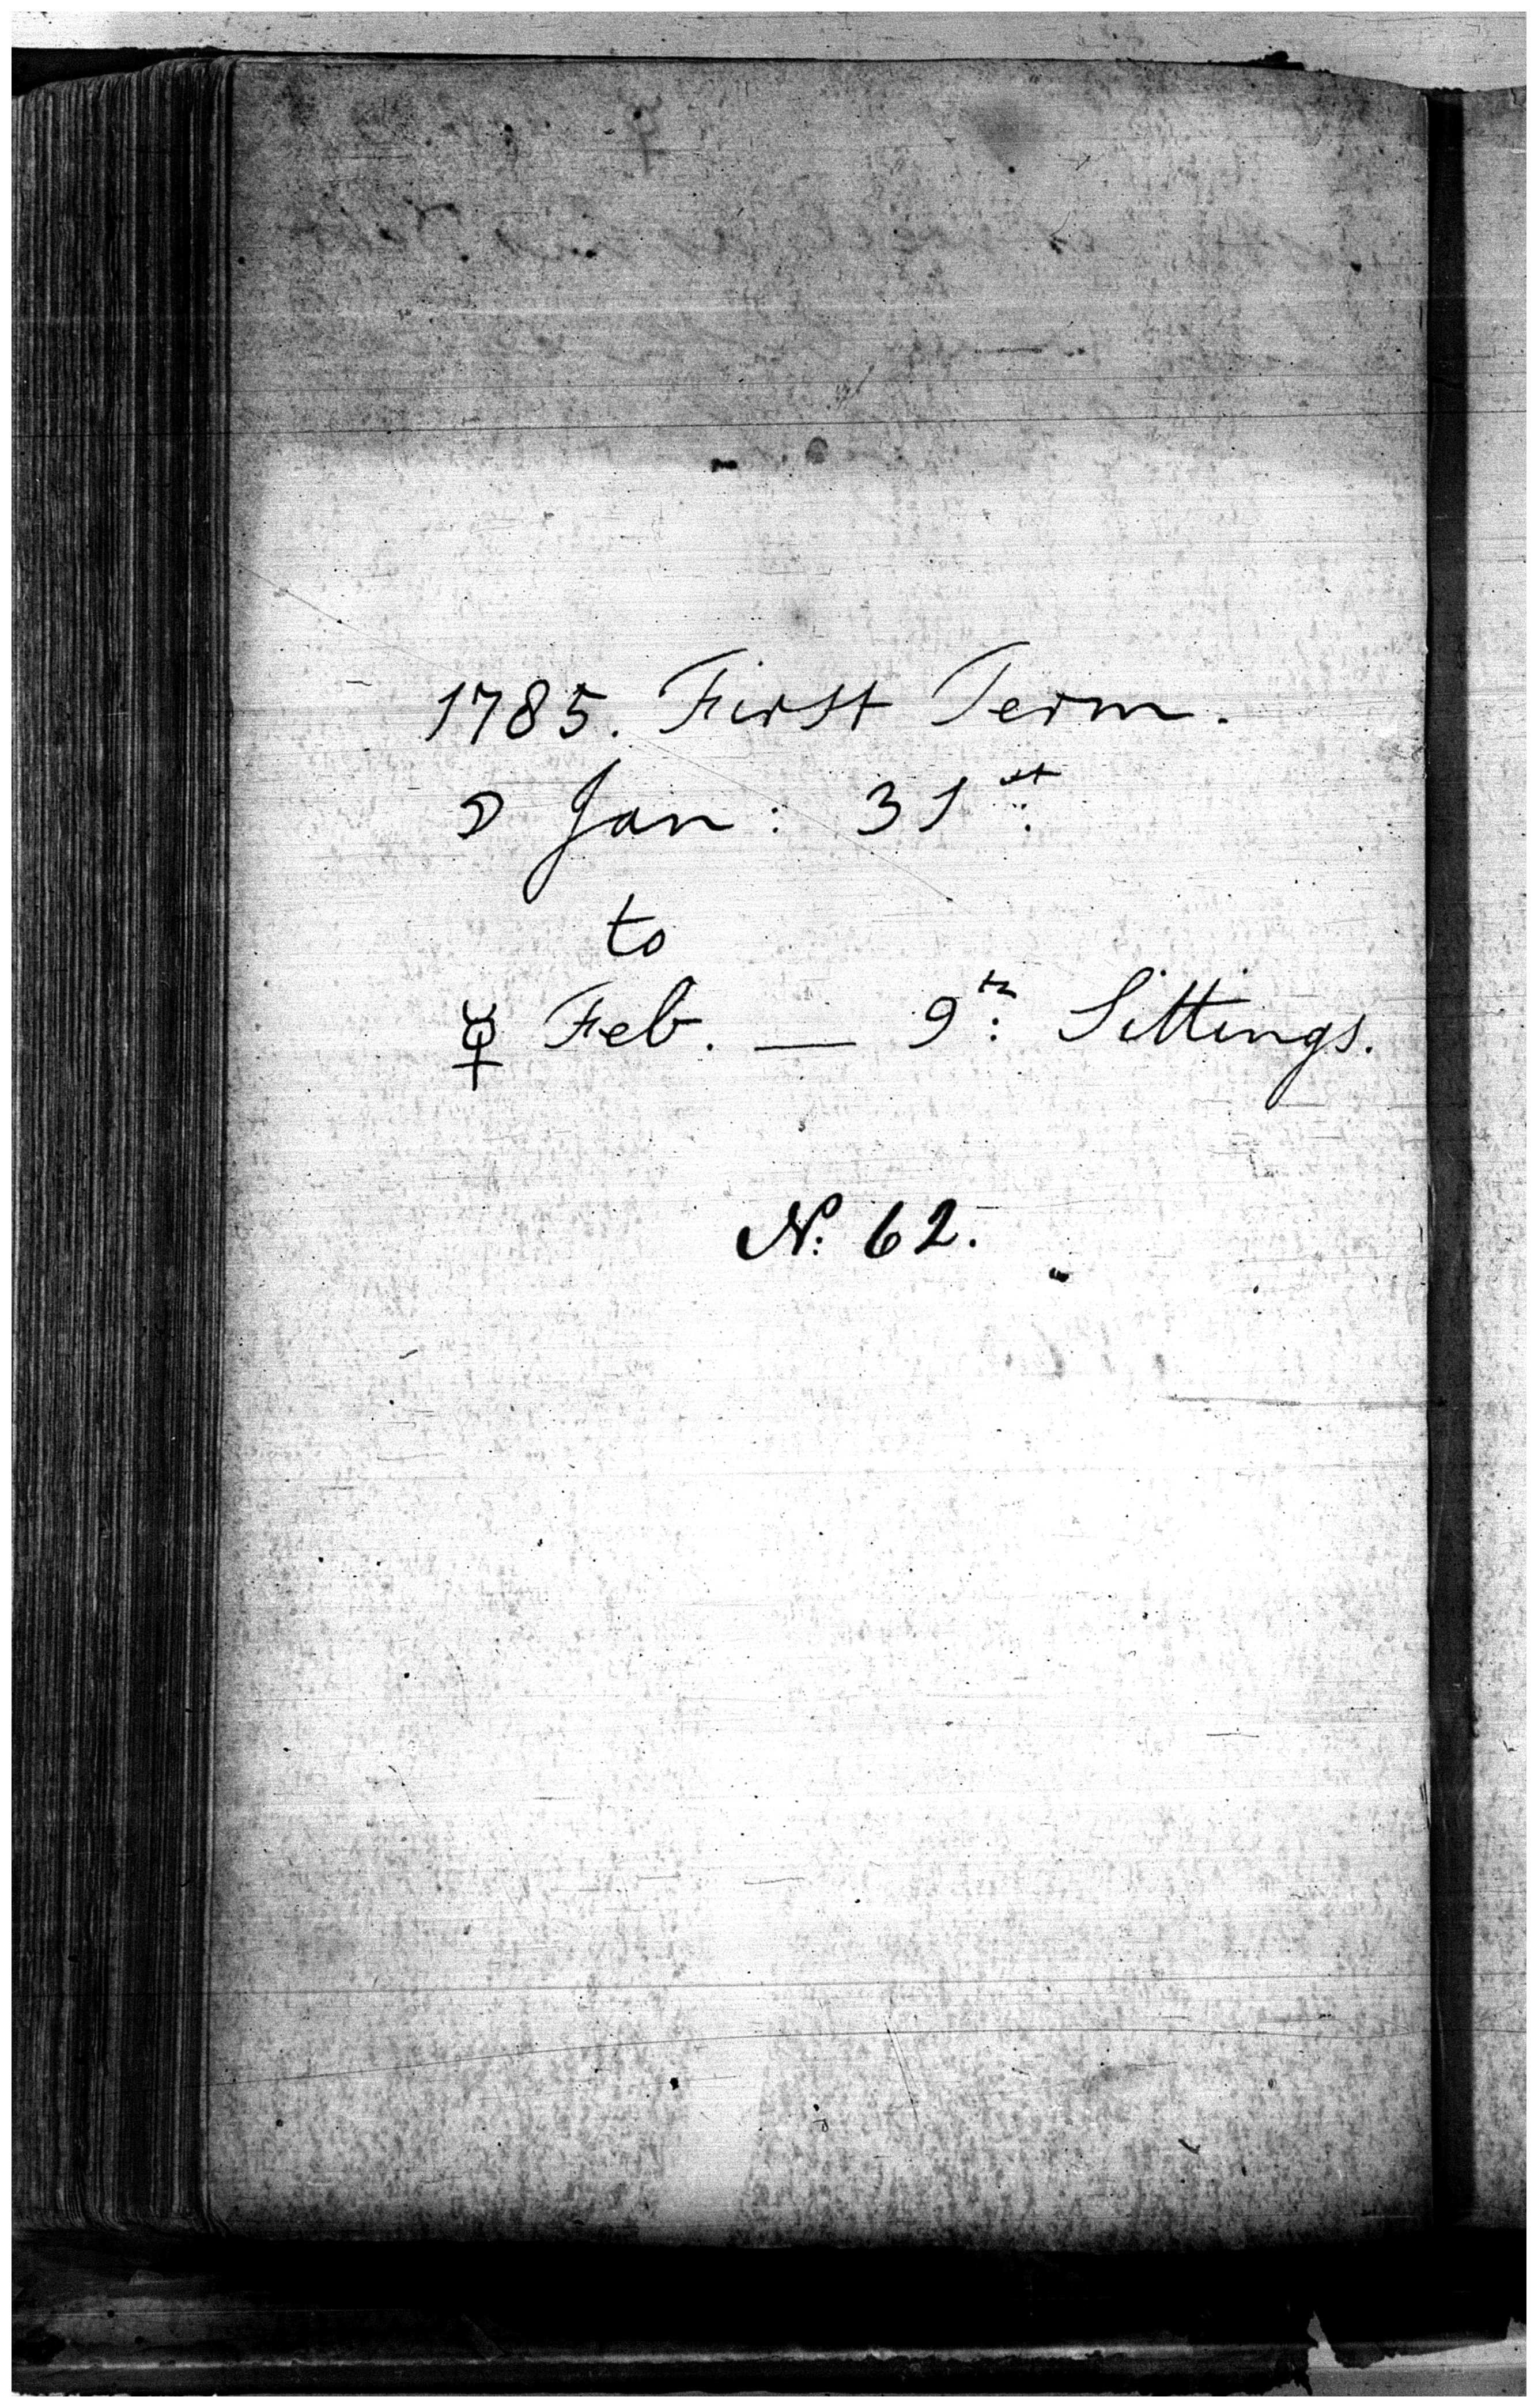 1785. First Term.
☽ Jan: 31st.
to
☿ Feb. — 9th: Sittings.
N: 62.